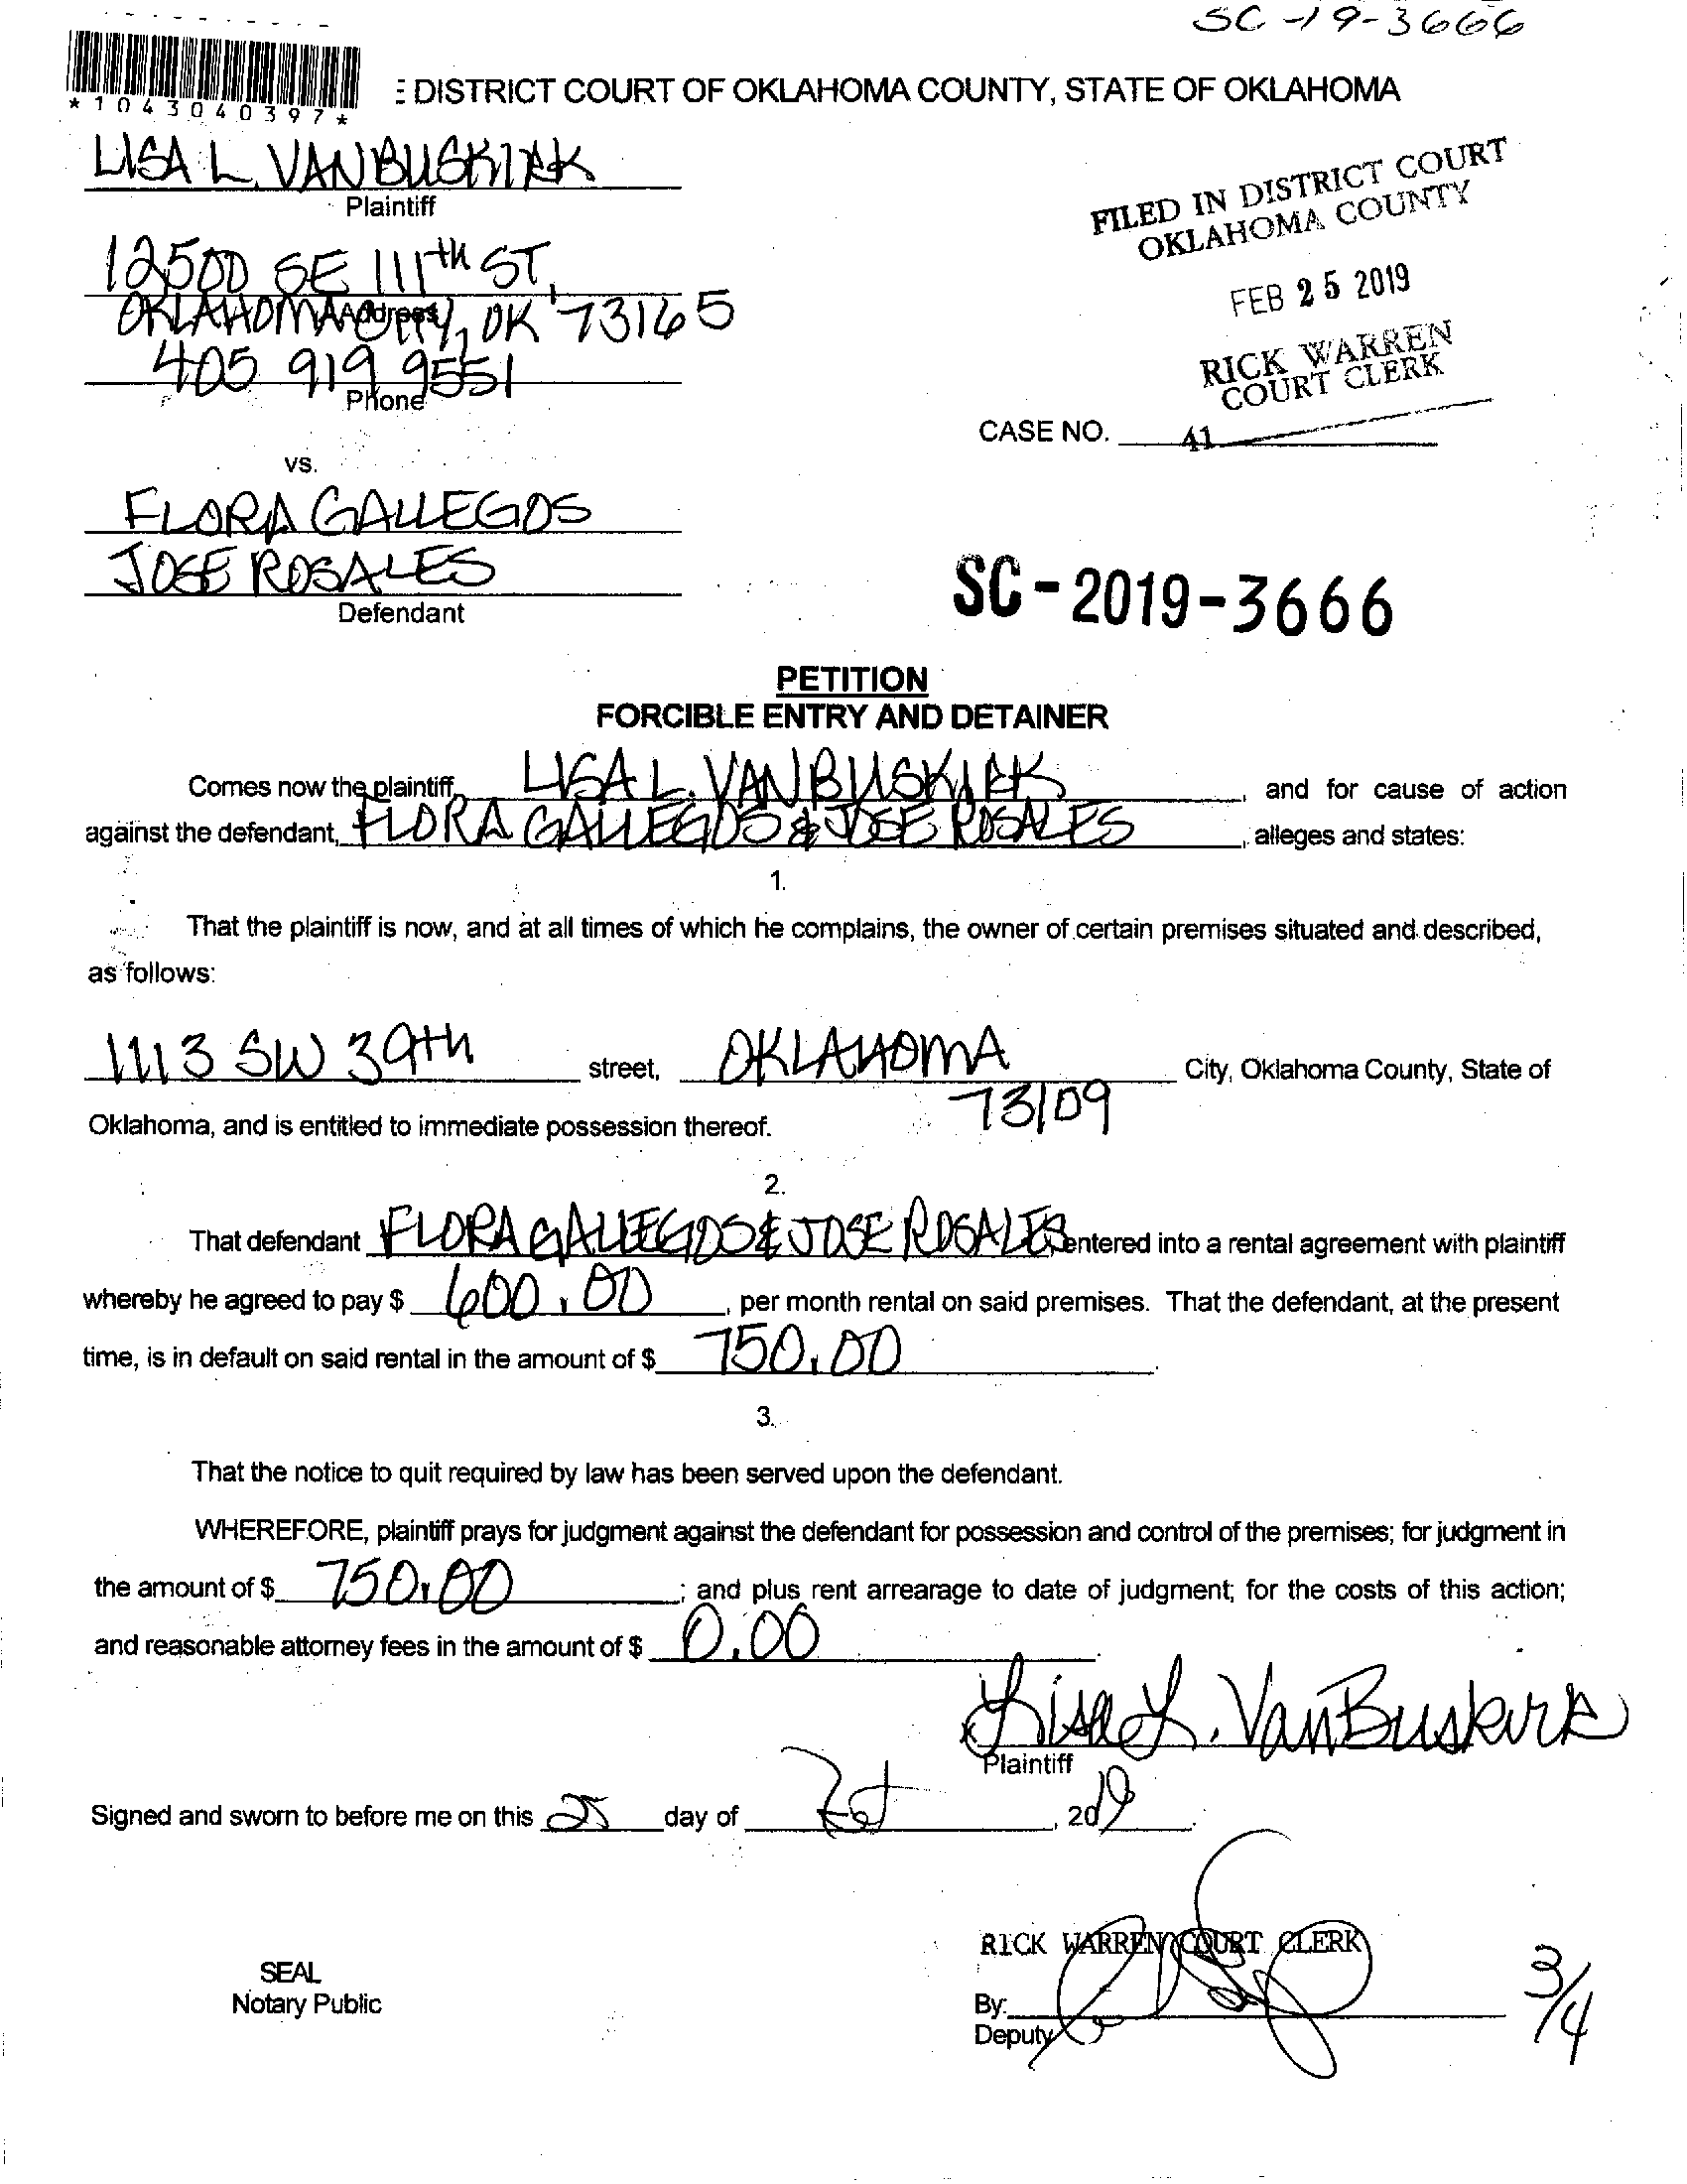 SC-19-3666
*1043040397*
E DISTRICT COURT OF OKLAHOMA COUNTY, STATE OF OKLAHOMA
LISA L. VANBUSKIRK
Plaintiff
FILED IN DISTRICT COURT
OKLAHOMA COUNTY
12500 SE 111th ST,
Address
OKLAHOMA CITY, OK 73165
FEB 25 2019
405 919 9551
Phone
RICK WARREN
COURT CLERK
CASE NO.
41
vs.
FLORA GALLEGOS
JOSE ROSALES
Defendant
SC-2019-3666
PETITION
FORCIBLE ENTRY AND DETAINER
Comes now the plaintiff, LISA L. VANBUSKIRK, and for cause of action
against the defendant, FLORA GALLEGOS & JOSE ROSALES, alleges and states:
1.
That the plaintiff is now, and at all times of which he complains, the owner of certain premises situated and described,
as follows:
1113 SW 39th street, OKLAHOMA City, Oklahoma County, State of
73109
Oklahoma, and is entitled to immediate possession thereof.
2.
That defendant FLORA GALLEGOS & JOSE ROSALES entered into a rental agreement with plaintiff
whereby he agreed to pay $ 600.00, per month rental on said premises. That the defendant, at the present
time, is in default on said rental in the amount of $ 750.00.
3.
That the notice to quit required by law has been served upon the defendant.
WHEREFORE, plaintiff prays for judgment against the defendant for possession and control of the premises; for judgment in
the amount of $ 750.00; and plus rent arrearage to date of judgment; for the costs of this action;
and reasonable attorney fees in the amount of $ 0.00.
Lisa L. VanBuskirk
Plaintiff
Signed and sworn to before me on this 25 day of Feb, 2019.
RICK WARREN COURT CLERK
SEAL
Notary Public
By:
Deputy
3/4